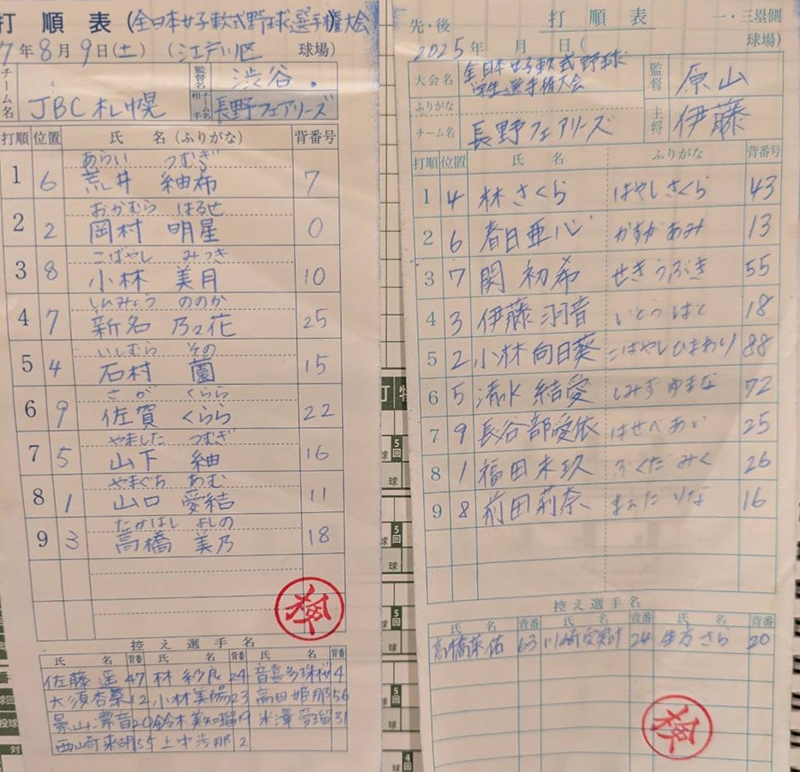 打順表(全日本女子軟式野球選手権大会
7年8月9日(土)(江戸川区 球場)
チーム名 JBC札幌
監督名 渋谷.
相手チーム名 長野フェアリーズ
打順 位置 氏名(ふりがな) 背番号
あらい つむぎ
1 6 荒井 紬希 7
おかむら はるせ
2 2 岡村 明星 0
こばやし みつき
3 8 小林 美月 10
しんみょう ののか
4 7 新名 乃々花 25
いしむら その
5 4 石村 薗 15
さが くらら
6 9 佐賀 くらら 22
やました つむぎ
7 5 山下 紬 16
やまぐち あむ
8 1 山口 愛結 11
たかはし よしの
9 3 高橋 美乃 18
検
控え選手名
氏名 背番 氏名 背番 氏名 背番
佐藤 遥 47 林 紗良 24 4
大須杏菜 12 小林美陽 23 高田姫那 56
景山 20 鈴木美知瑠 19 米澤 31
西崎来胡 55 上中 2
先・後 打順表 一・三塁側
2025年 月 日( 球場)
大会名 全日本女子軟式野球
学生選手権大会
監督 原山
ふりがな
チーム名 長野フェアリーズ
主将 伊藤
打順 位置 氏名 ふりがな 背番号
1 4 林 さくら はやしさくら 43
2 6 春日亜心 かすがあみ 13
3 7 関 初希 せきうぶき 55
4 3 伊藤羽音 いとうはと 18
5 2 小林向日葵 こばやしひまわり 88
6 5 清水結愛 しみずゆまな 72
7 9 長谷部愛依 はせべあい 25
8 1 福田未玖 ふくだみく 26
9 8 前田莉奈 まえだりな 16
控え選手名
氏名 背番 氏名 背番 氏名 背番
高橋茉佑 63 川崎 24 さら 20
検